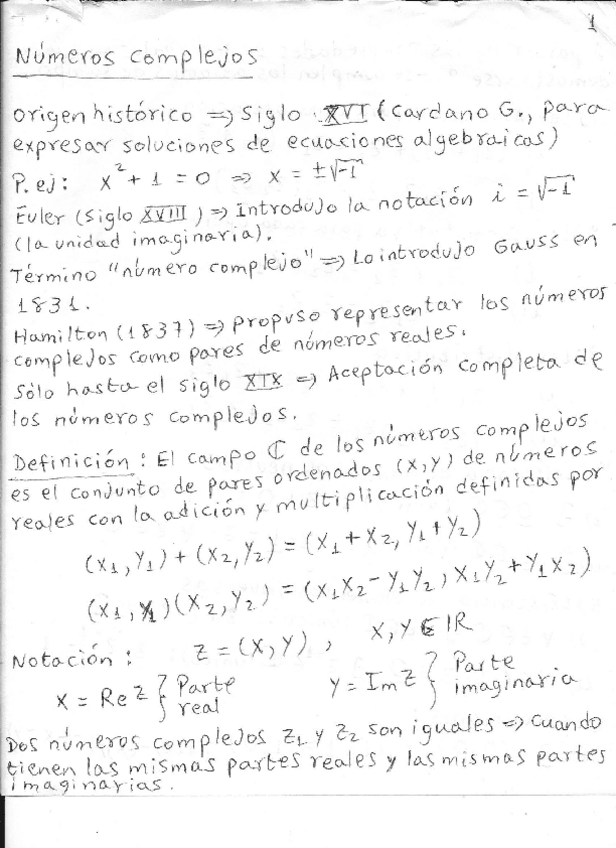 1
Números complejos
origen histórico ⇒ Siglo XVI (Cardano G., para
expresar soluciones de ecuaciones algebraicas)
P. ej: x² + 1 = 0 ⇒ x = ±√-1
Euler (Siglo XVIII) ⇒ Introdujo la notación i = √-1
(la unidad imaginaria).
Término "número complejo" ⇒ Lo introdujo Gauss en
1831.
Hamilton (1837) ⇒ propuso representar los números
complejos como pares de números reales.
Sólo hasta el siglo XIX ⇒ Aceptación completa de
los números complejos.
Definición: El campo ℂ de los números complejos
es el conjunto de pares ordenados (x,y) de números
reales con la adición y multiplicación definidas por
(x₁, y₁) + (x₂, y₂) = (x₁ + x₂, y₁ + y₂)
(x₁, y₁)(x₂, y₂) = (x₁x₂ - y₁y₂, x₁y₂ + y₁x₂)
Notación: z = (x, y), x, y ∈ IR
x = Re z } Parte real y = Im z } Parte imaginaria
Dos números complejos z₁ y z₂ son iguales ⇒ cuando
tienen las mismas partes reales y las mismas partes
imaginarias.